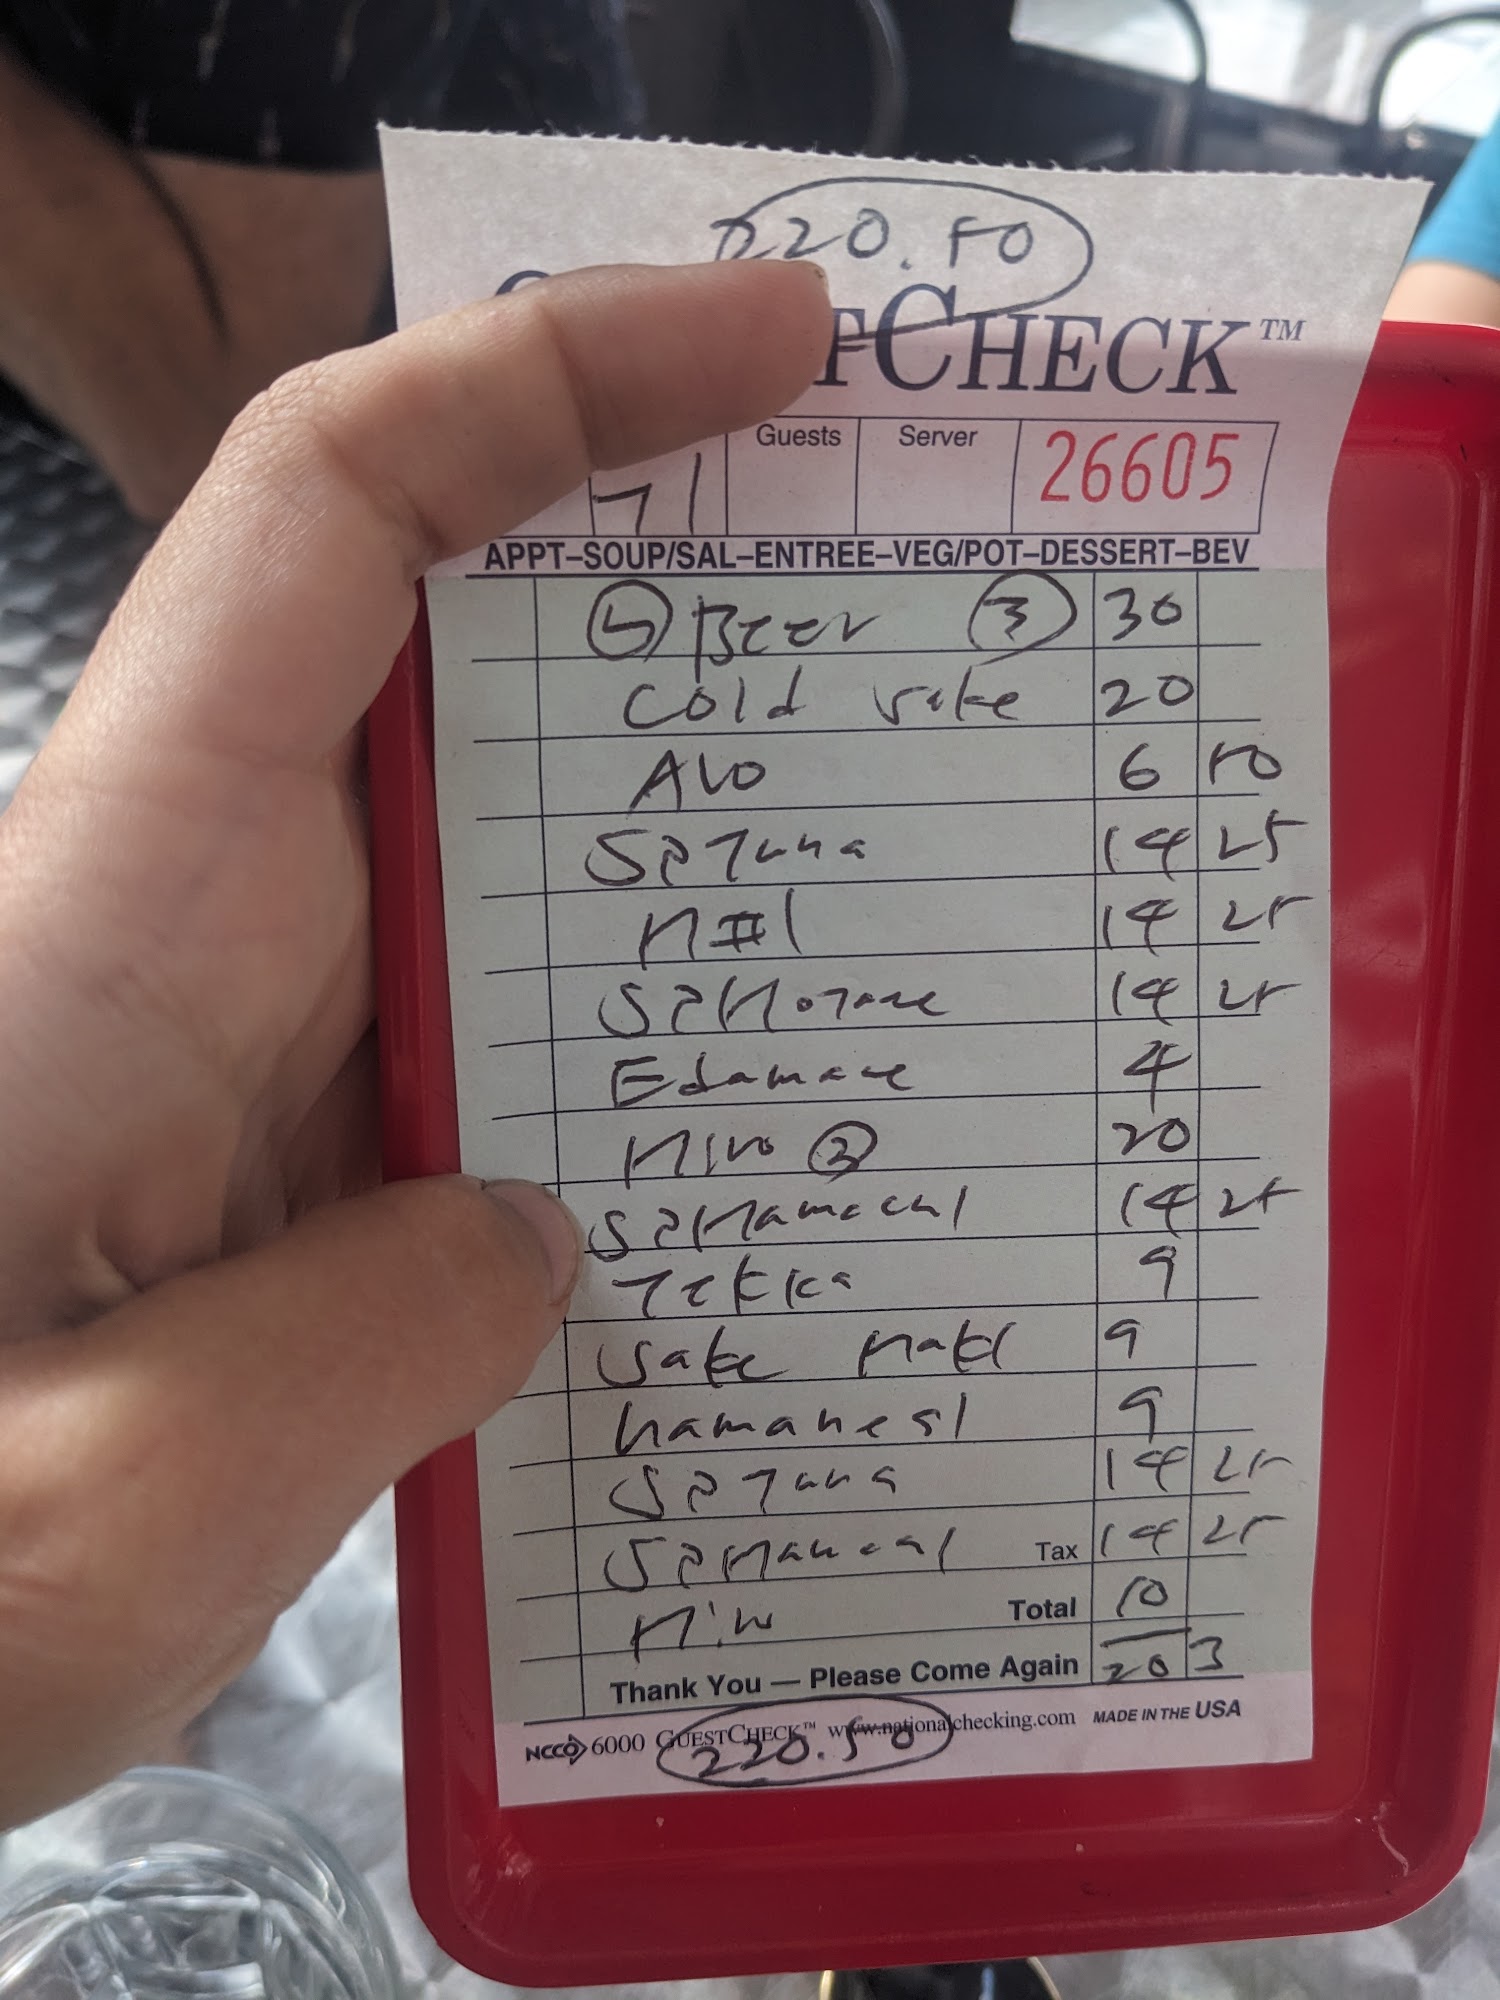 220.50
TCHECK™
Guests Server 26605
71
APPT–SOUP/SAL–ENTREE–VEG/POT–DESSERT–BEV
5 Beer 3 30
Cold sake 20
Avo 6 50
Sp Tuna 14 25
M#1 14 25
14 25
Edamame 4
2 20
Sp Hamachi 14 25
Tekka 9
Sake Maki 9
9
Sp Tuna 14 25
Tax 14 25
Total 10
Thank You — Please Come Again 203
NCCO 6000 GUESTCHECK™ www.nationalchecking.com MADE IN THE USA
220.50